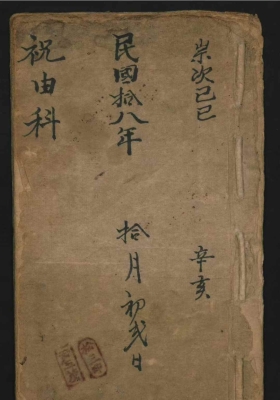 崇次己巳
辛亥
民國拾八年
拾月初弍日
祝由科